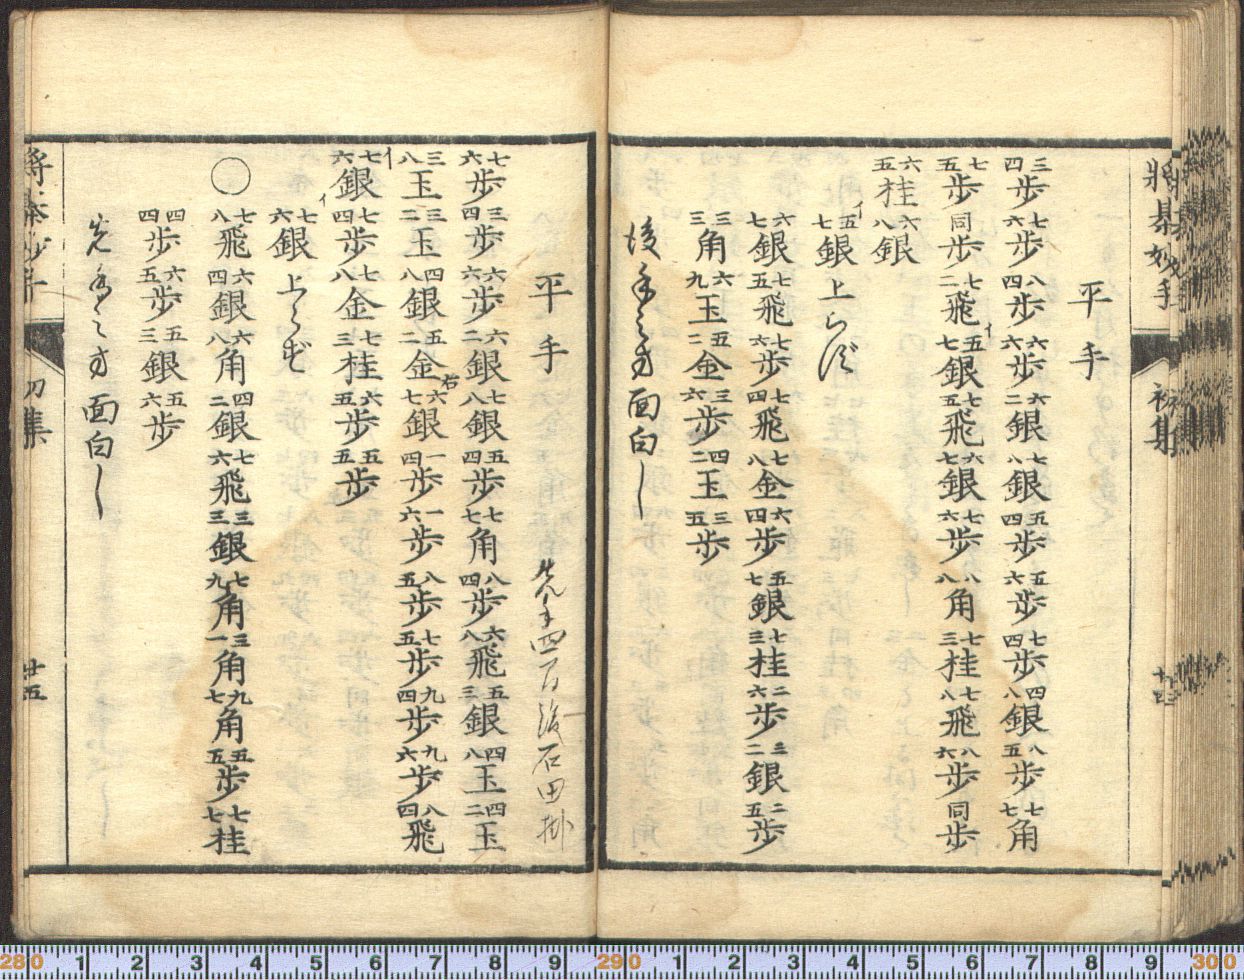 將棊妙手 初集
平手
三四歩七六歩八四歩六六歩六二銀七八銀五四歩五六歩七四歩四八銀八五歩七七角
七五歩同歩七二飛イ五七銀七五飛六七銀七六歩八八角七三桂七八飛八六歩同歩
六五桂六八銀
イ五七銀上らず
六七銀七五飛七六歩七四飛七八金六四歩五七銀七三桂二六歩三二銀二五歩
三三角六九玉五二金三六歩四二玉三五歩
後手之方面白し
平手 先手四間後石田掛
七六歩三四歩六六歩六二銀七八銀五四歩七七角八四歩六八飛五三銀四八玉四二玉
三八玉三二玉四八銀五二金右六七銀一四歩一六歩八五歩七五歩九四歩九六歩八四飛
イ七六銀七四歩七八金七三桂六五歩五五歩
イ七六銀上らず
○七八飛六四銀六八角四二銀七六飛三三銀七九角三一角九七角五五歩七七桂
四四歩六五歩五三銀五六歩
先手之方面白し
將棊妙手 初集 廿五